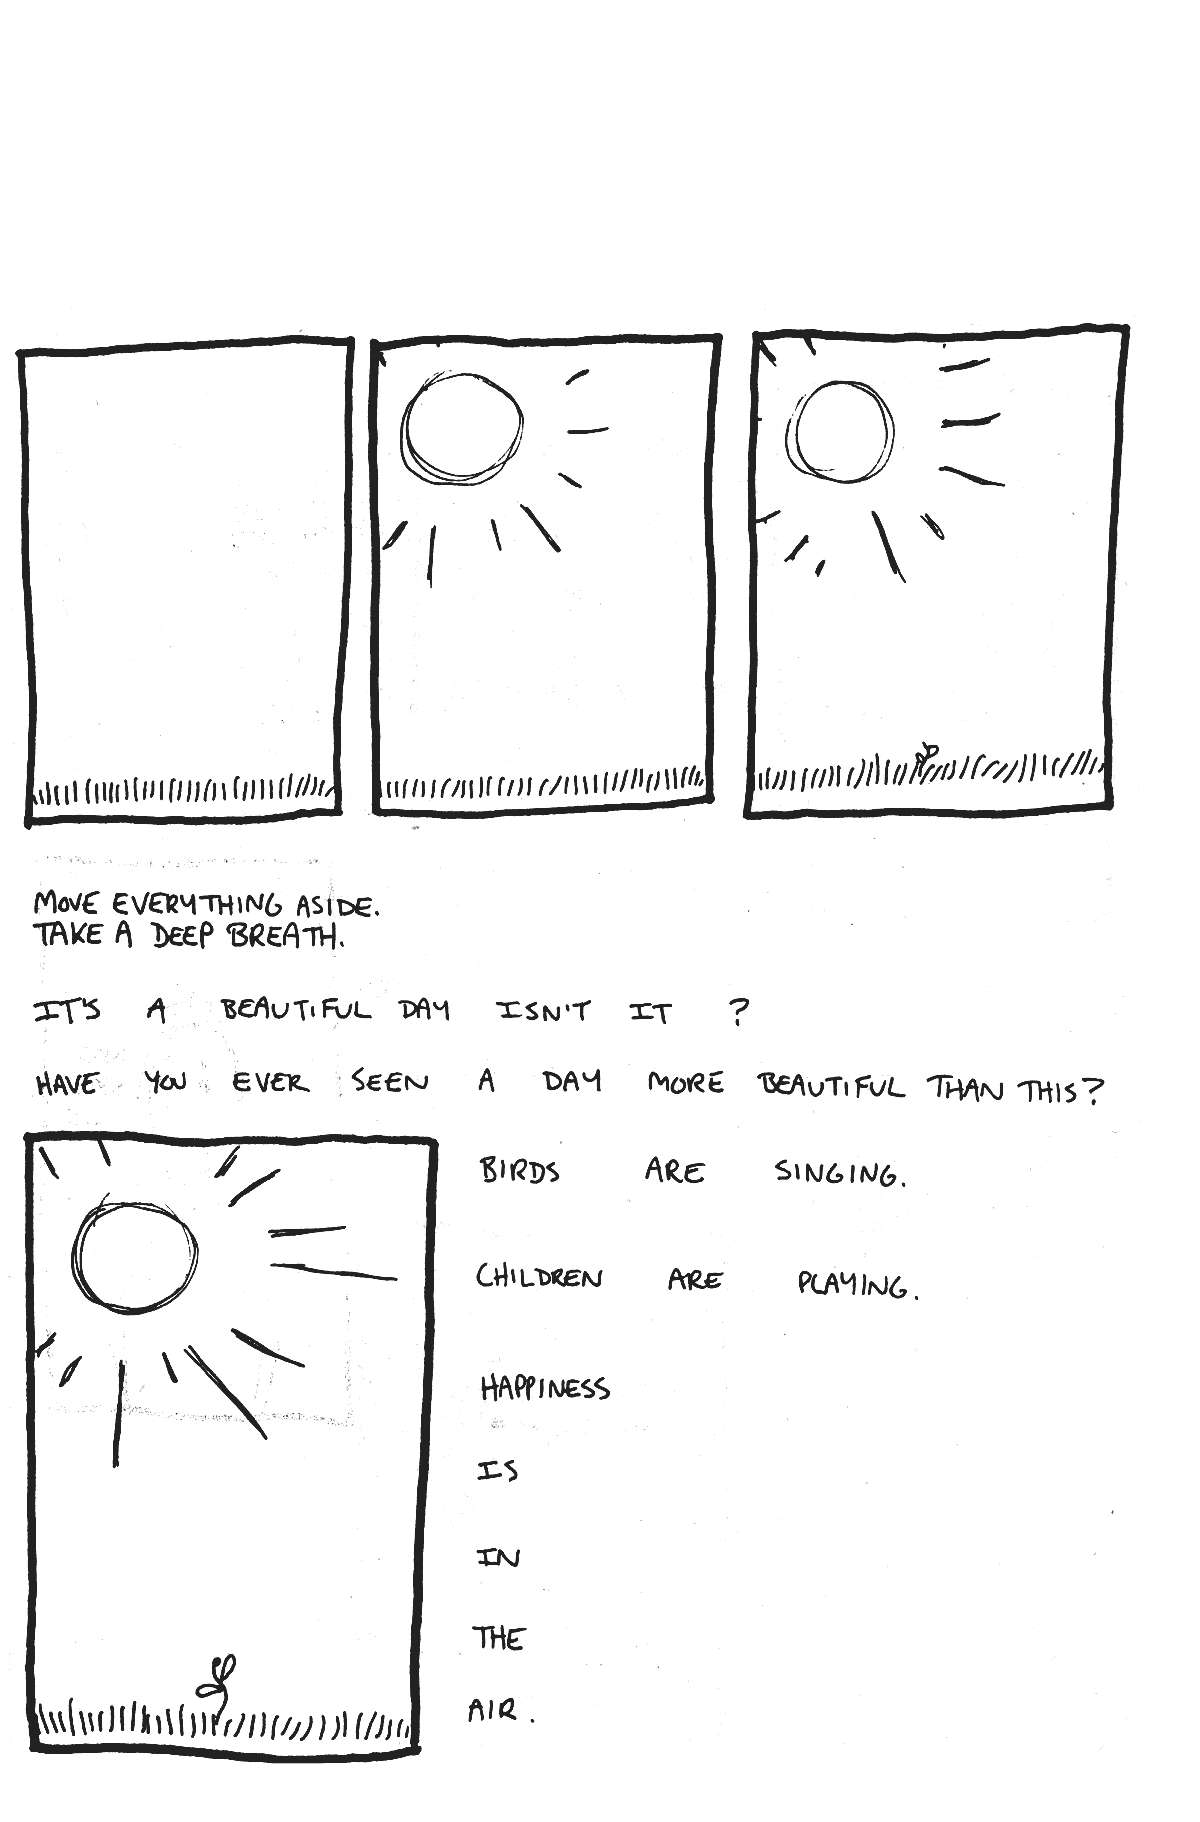 MOVE EVERYTHING ASIDE.
TAKE A DEEP BREATH.
IT'S A BEAUTIFUL DAY ISN'T IT ?
HAVE YOU EVER SEEN A DAY MORE BEAUTIFUL THAN THIS?
BIRDS ARE SINGING.
CHILDREN ARE PLAYING.
HAPPINESS
IS
IN
THE
AIR.